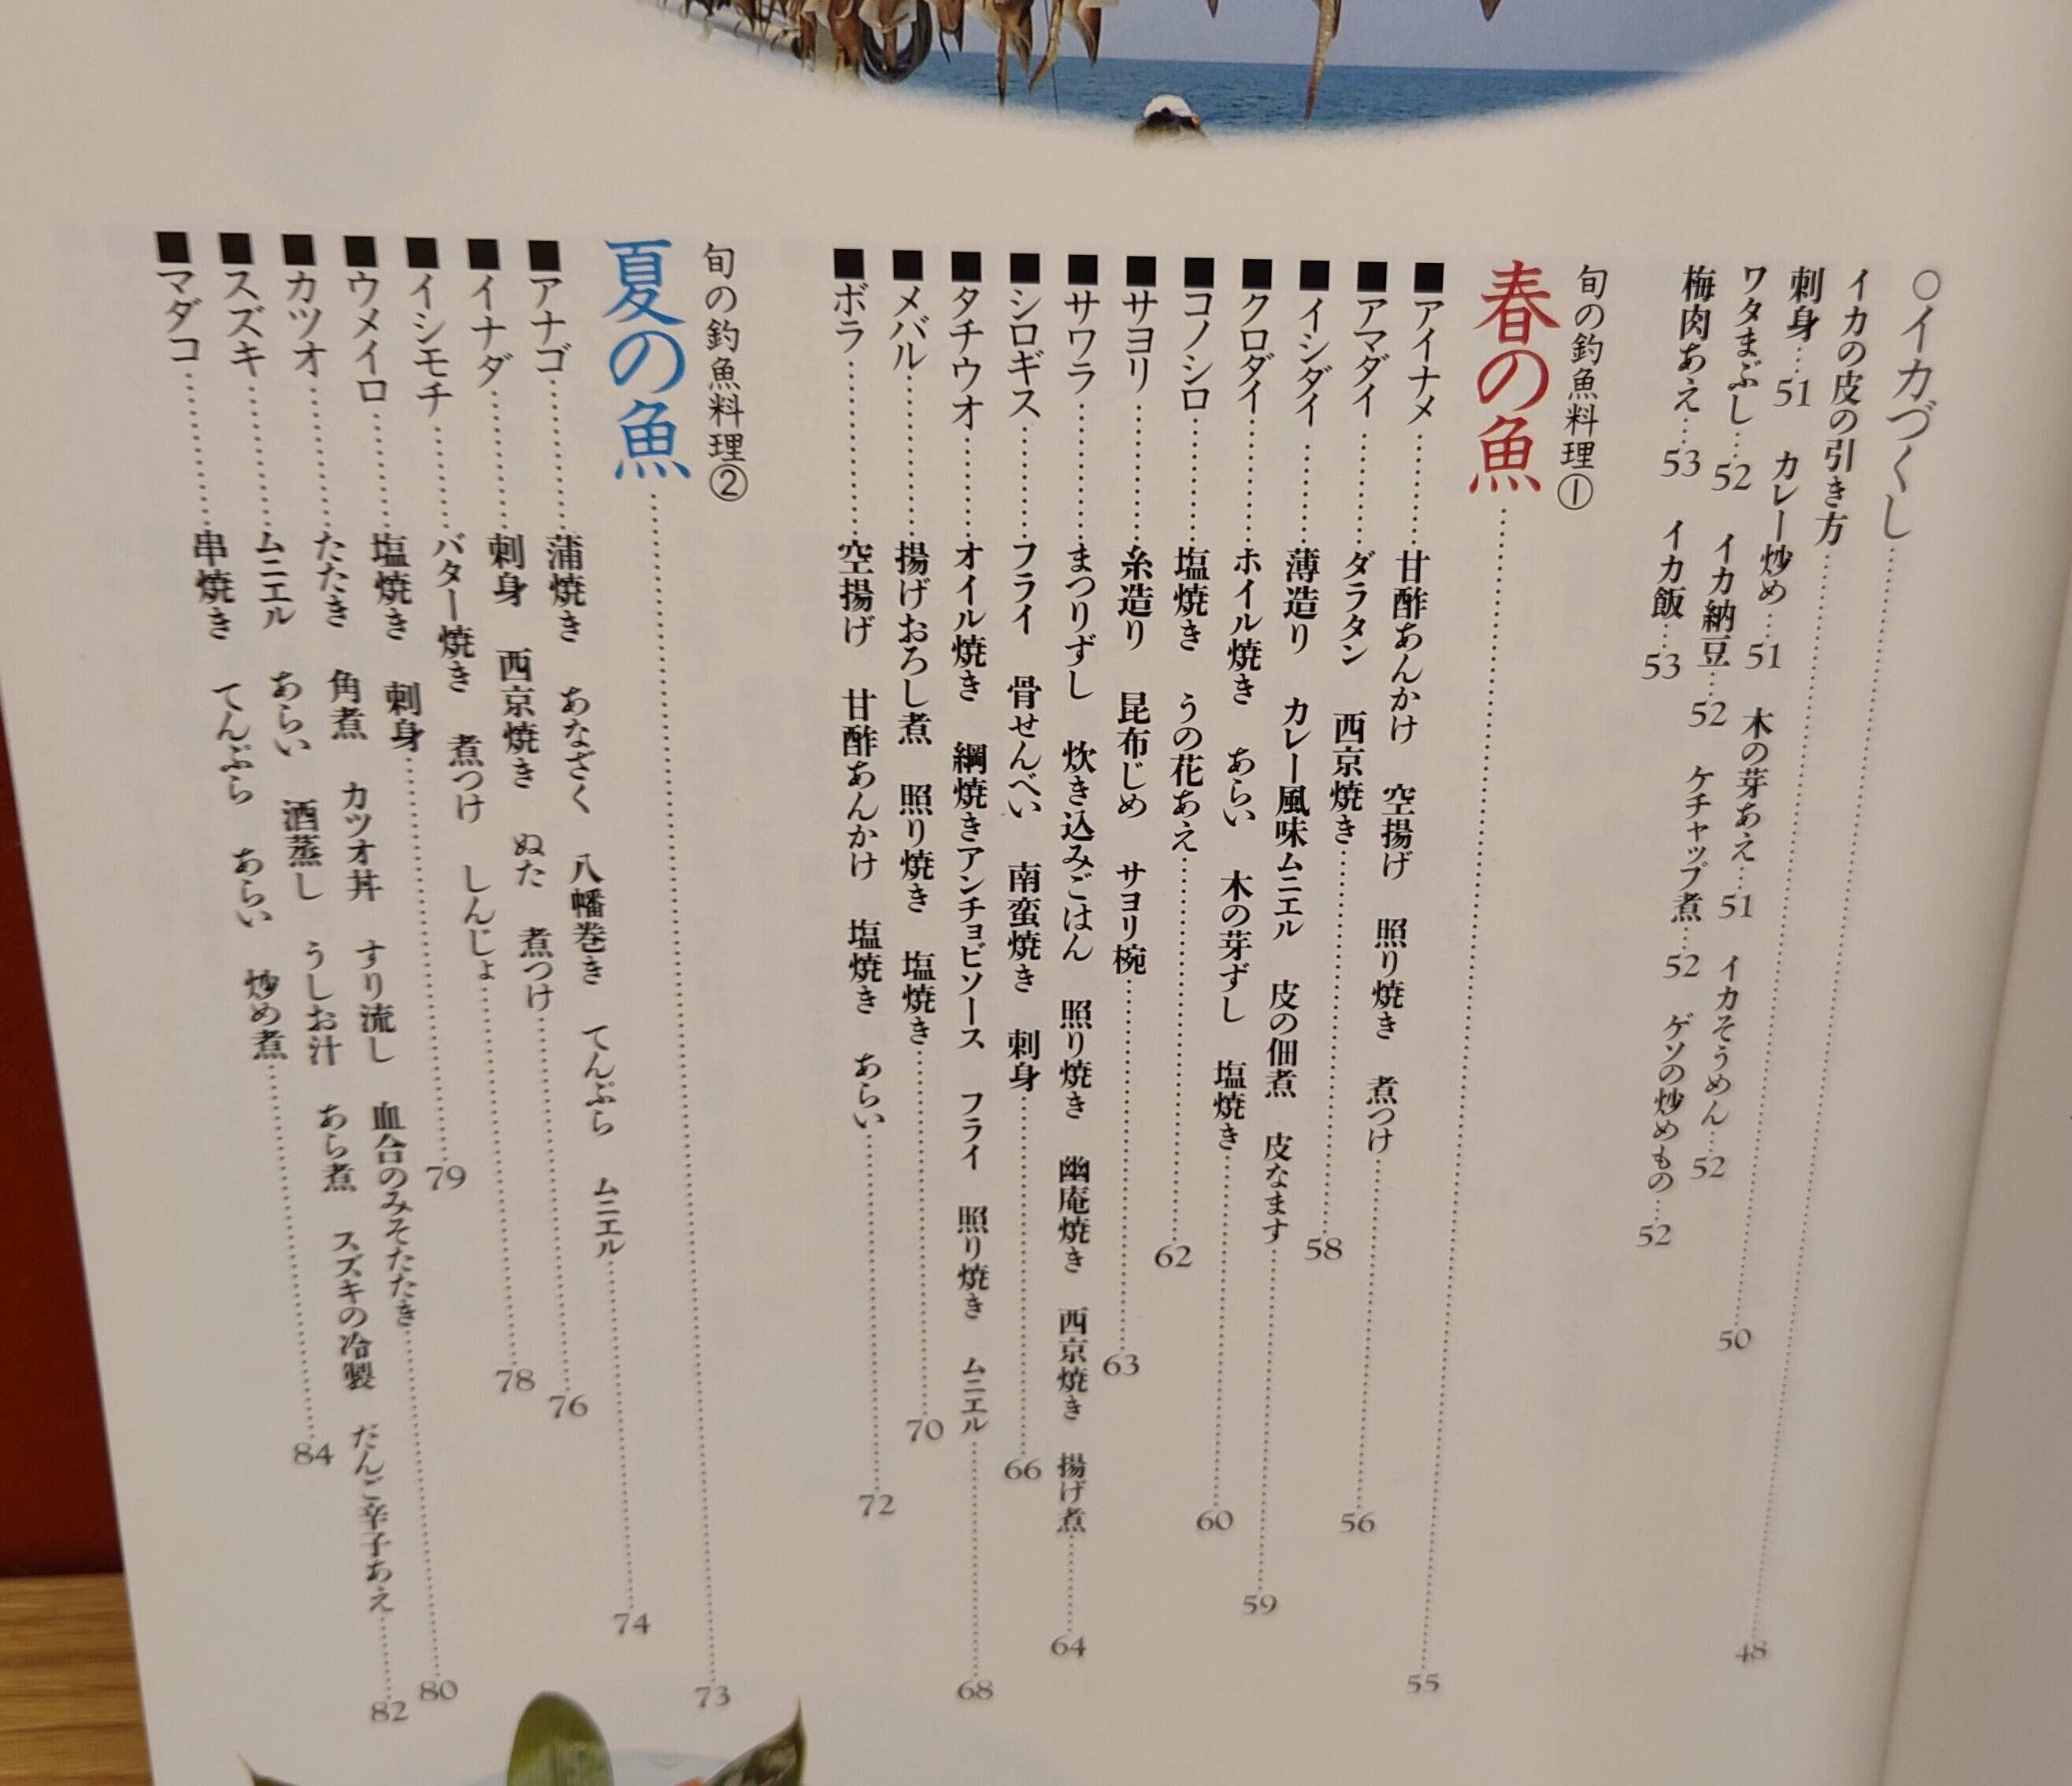 ○イカづくし……48
イカの皮の引き方……50
刺身…51　カレー炒め…51　木の芽あえ…51　イカそうめん…52
ワタまぶし…52　イカ納豆…52　ケチャップ煮…52　ゲソの炒めもの…52
梅肉あえ…53　イカ飯…53
旬の釣魚料理①
春の魚……55
■アイナメ……甘酢あんかけ　空揚げ　照り焼き　煮つけ……56
■アマダイ……ダラタン　西京焼き……58
■イシダイ……薄造り　カレー風味ムニエル　皮の佃煮　皮なます……59
■クロダイ……ホイル焼き　あらい　木の芽ずし　塩焼き……60
■コノシロ……塩焼き　うの花あえ……62
■サヨリ……糸造り　昆布じめ　サヨリ椀……63
■サワラ……まつりずし　炊き込みごはん　照り焼き　幽庵焼き　西京焼き　揚げ煮……64
■シロギス……フライ　骨せんべい　南蛮焼き　刺身……66
■タチウオ……オイル焼き　網焼きアンチョビソース　フライ　照り焼き　ムニエル……68
■メバル……揚げおろし煮　照り焼き　塩焼き……70
■ボラ……空揚げ　甘酢あんかけ　塩焼き　あらい……72
旬の釣魚料理②
夏の魚……73
■アナゴ……蒲焼き　あなざく　八幡巻き　てんぷら　ムニエル……74
■イナダ……刺身　西京焼き　ぬた　煮つけ……76
■イシモチ……バター焼き　煮つけ　しんじょ……78
■ウメイロ……塩焼き　刺身……79
■カツオ……たたき　角煮　カツオ丼　すり流し　血合のみそたたき……80
■スズキ……ムニエル　あらい　酒蒸し　うしお汁　あら煮　スズキの冷製　だんご辛子あえ……82
■マダコ……串焼き　てんぷら　あらい　炒め煮……84